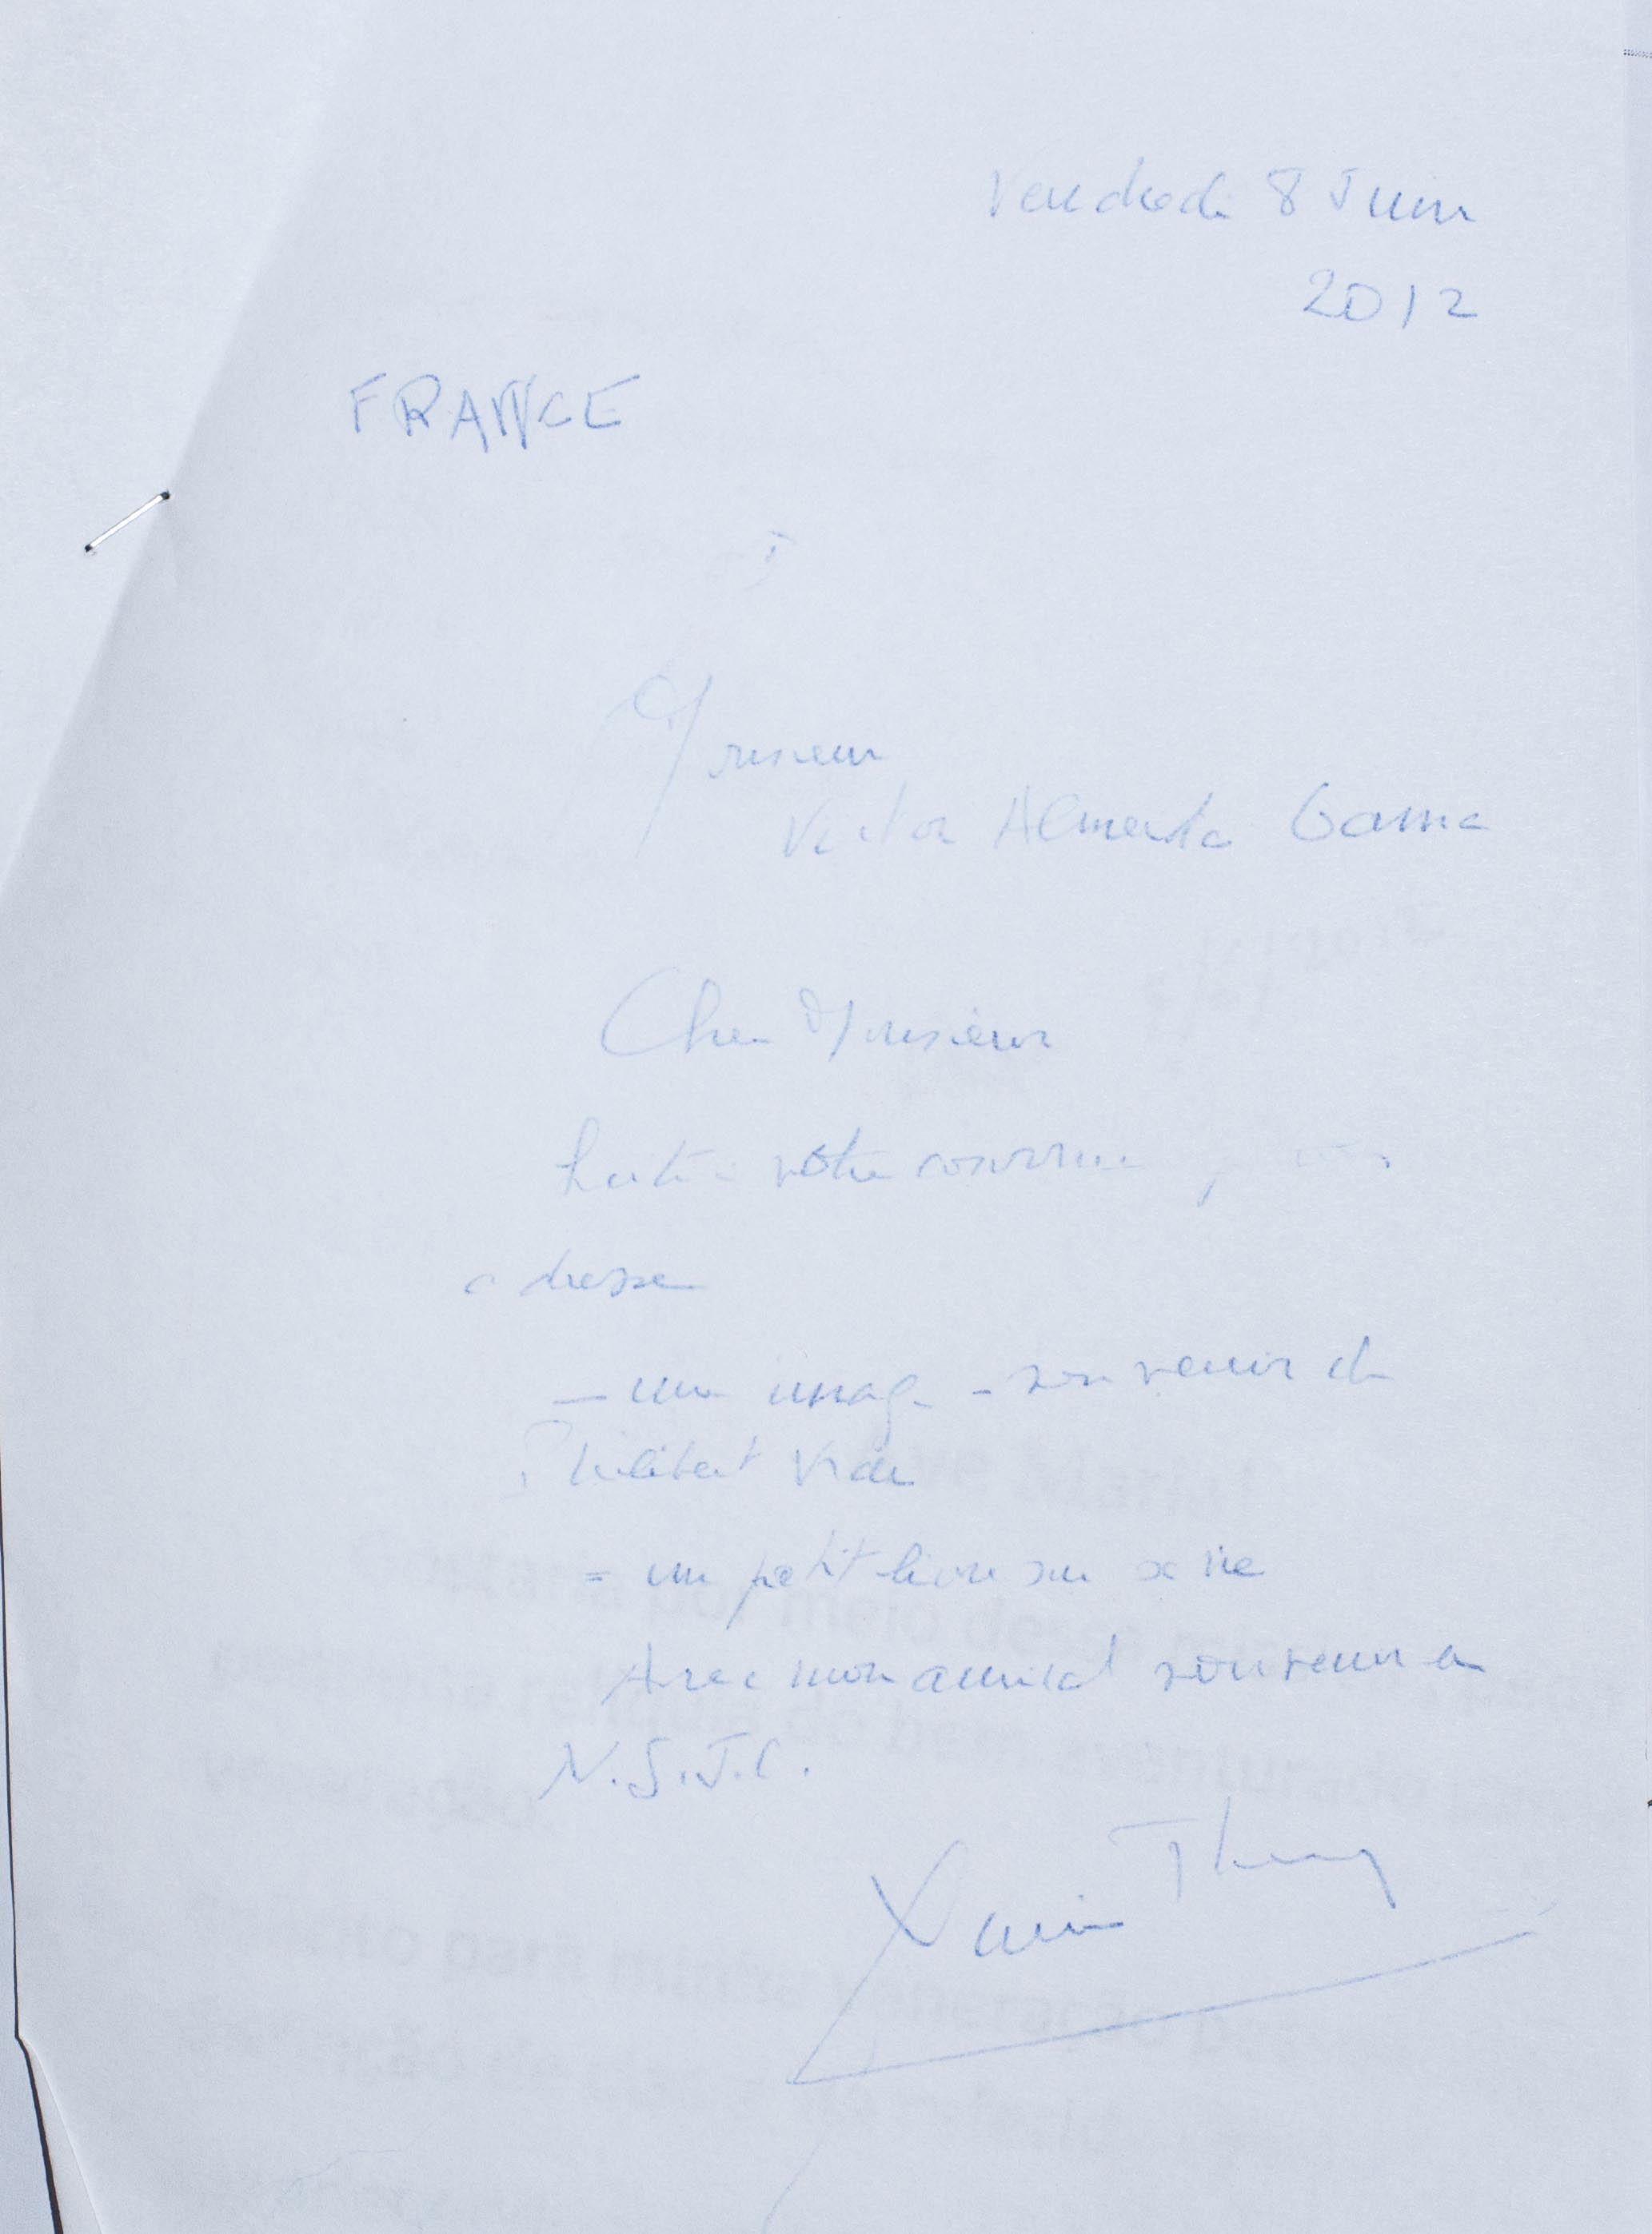 Vendredi 8 Juin
2012
FRANCE
Monsieur
Victor Almeida Gama
Cher Monsieur
Suite à votre
adresse
- une image - souvenir de
Philibert Vrau
= un petit livre sur sa vie
Avec mon amical souvenir en
N.S.J.C.
Xavier Thery